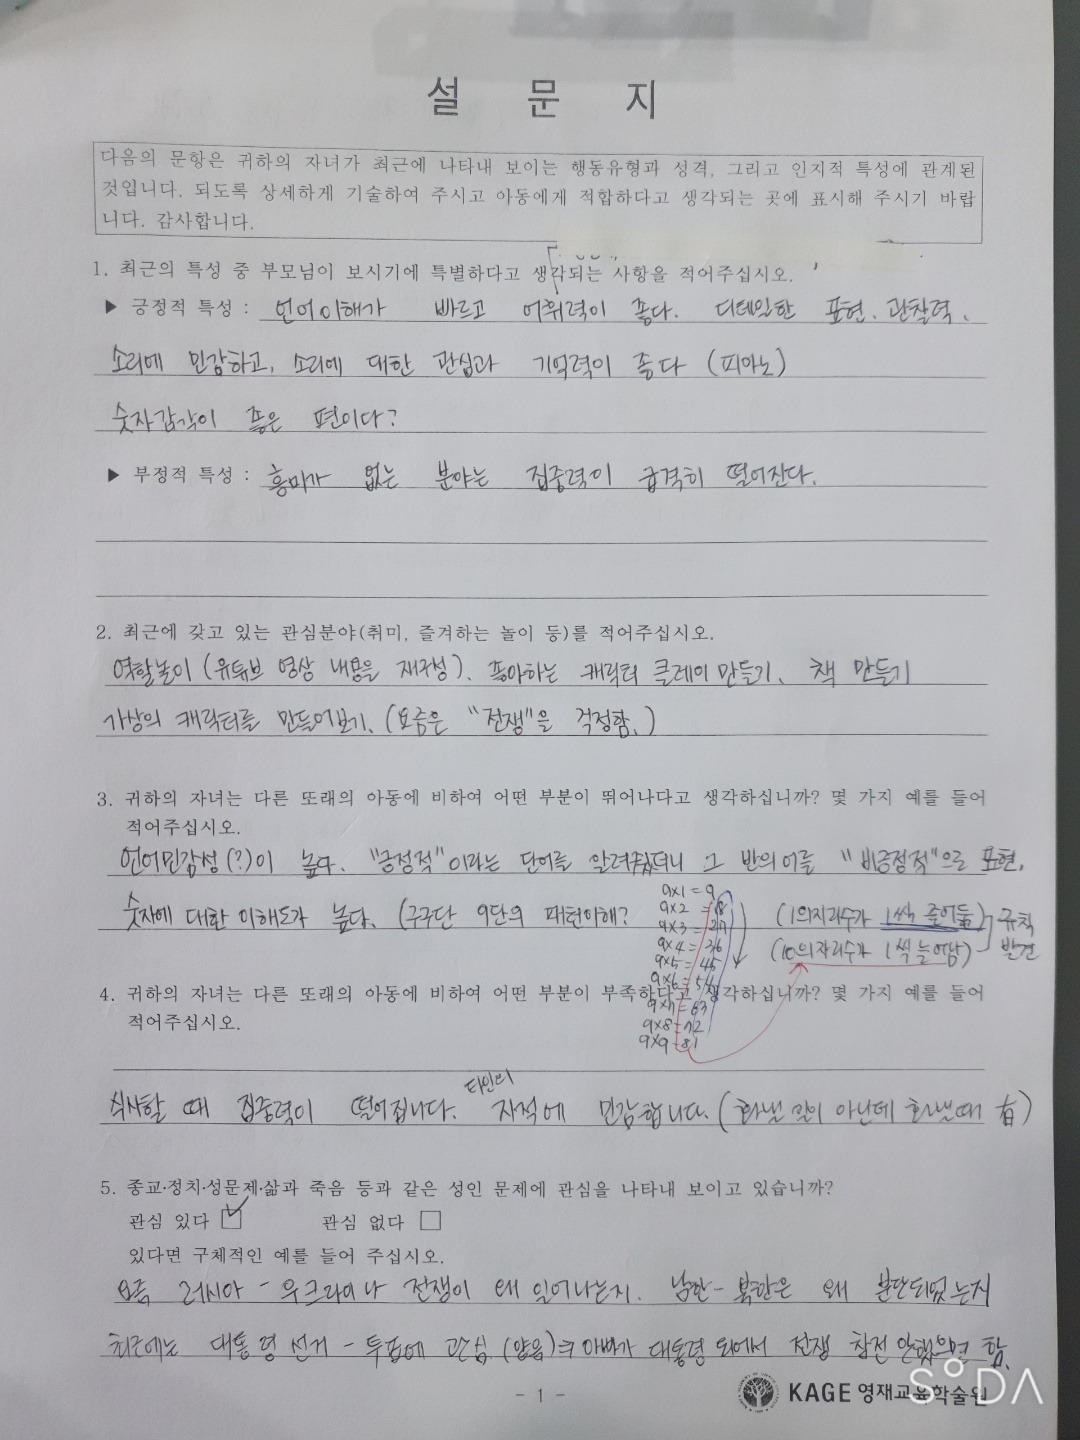 설 문 지
다음의 문항은 귀하의 자녀가 최근에 나타내 보이는 행동유형과 성격, 그리고 인지적 특성에 관계된
것입니다. 되도록 상세하게 기술하여 주시고 아동에게 적합하다고 생각되는 곳에 표시해 주시기 바랍
니다. 감사합니다.
1. 최근의 특성 중 부모님이 보시기에 특별하다고 생각되는 사항을 적어주십시오.
▶ 긍정적 특성 : 언어이해가 빠르고 어휘력이 좋다. 디테일한 표현, 관찰력,
소리에 민감하고, 소리에 대한 관심과 기억력이 좋다 (피아노)
숫자감각이 좋은 편이다?
▶ 부정적 특성 : 흥미가 없는 분야는 집중력이 급격히 떨어진다.
2. 최근에 갖고 있는 관심분야(취미, 즐겨하는 놀이 등)를 적어주십시오.
역할놀이 (유튜브 영상 내용을 재구성), 좋아하는 캐릭터 클레이 만들기, 책 만들기
가상의 캐릭터를 만들어보기. (요즘은 "전쟁"을 걱정함.)
3. 귀하의 자녀는 다른 또래의 아동에 비하여 어떤 부분이 뛰어나다고 생각하십니까? 몇 가지 예를 들어
적어주십시오.
언어민감성(?)이 높다. "긍정적"이라는 단어를 알려줬더니 그 반의어를 "비긍정적"으로 표현.
숫자에 대한 이해도가 높다. (구구단 9단의 패턴이해?
9x1 = 9
9x2 = 18
9x3 = 27
9x4 = 36
9x5 = 45
9x6 = 54
9x7 = 63
9x8 = 72
9x9 = 81
(1의자리수가 1씩 줄어듦)
(10의자리수가 1씩 늘어남)
규칙
발견
4. 귀하의 자녀는 다른 또래의 아동에 비하여 어떤 부분이 부족하다고 생각하십니까? 몇 가지 예를 들어
적어주십시오.
식사할 때 집중력이 떨어집니다. 타인의 지적에 민감합니다. (화낼 일이 아닌데 화낼때 有)
5. 종교·정치·성문제·삶과 죽음 등과 같은 성인 문제에 관심을 나타내 보이고 있습니까?
관심 있다 관심 없다
있다면 구체적인 예를 들어 주십시오.
요즘 러시아 - 우크라이나 전쟁이 왜 일어나는지. 남한 - 북한은 왜 분단되었는지
최근에는 대통령 선거 - 투표에 관심 아빠가 대통령 되어서 전쟁 참전 안했으면 함.
- 1 -
KAGE 영재교육학술원
SODA